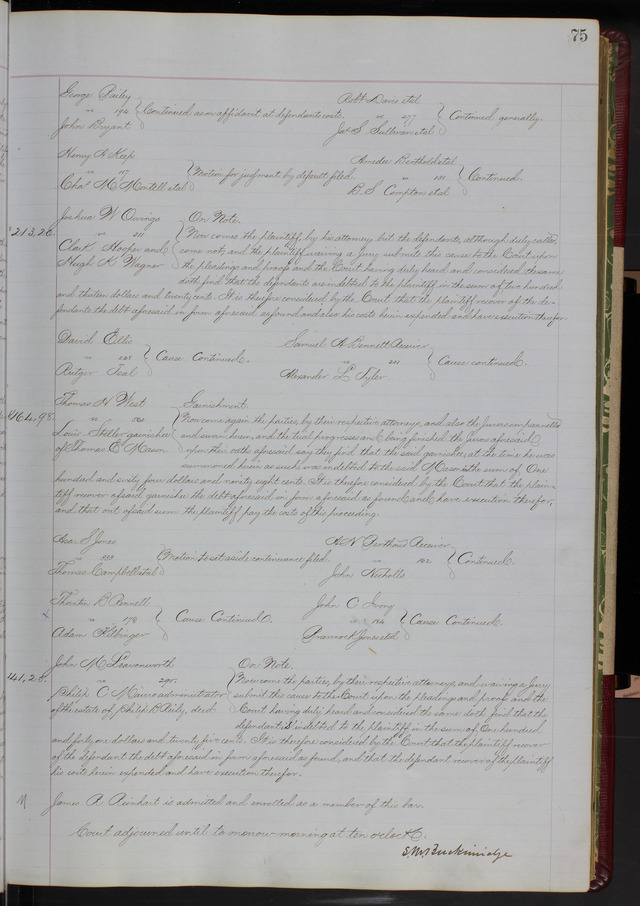 75
George Bailey
vs 194 Continued as on affidavit at defendants costs.
John Bryant
Robt Davis etal
vs 277 Continued generally.
Jas S. Sullivan etal
Henry A Keep
vs 117 Motion for judgment by default filed.
Chas M. Montell etal
Amedee Berthold etal
vs 131 Continued.
B. S. Compton etal
213,20. Joshua W Owings On Note.
vs 211 Now comes the plaintiff, by his attorney but the defendants, although duly called,
Clark Hooper and come not; and the plaintiff waiving a Jury submits this cause to the Court upon
Hugh K Wagner the pleadings and proofs and the Court having duly heard and considered the same
doth find that the defendants are indebted to the plaintiff in the sum of two hundred
and thirteen dollars and twenty cents. It is therefore considered by the Court that the plaintiff recover of the de-
fendants the debt aforesaid in form aforesaid as found and also his costs herein expended and have execution therefor.
David Ellis
vs Cause Continued.
Rutger Teal
Samuel A Bennett Receiver
vs 221 Cause continued.
Alexander L Tyler
164,98. Thomas H West Garnishment.
vs Now come again the parties, by their respective attorneys, and also the Jurors empannelled
Louis garnishee and sworn herein, and the trial progresses and being finished the Jurors aforesaid
of Thomas E Mason upon their oaths aforesaid say they find that the said garnishee, at the time he was
summoned herein as such was indebted to the said Mason in the sum of One
hundred and sixty four dollars and ninety eight cents. It is therefore considered by the Court that the plain-
tiff recover of said garnishee the debt aforesaid in form aforesaid as found and have execution therefor,
and that out of said sum the plaintiff pay the costs of this proceeding.
Asa S Jones
vs 333 Motion to set aside continuance filed.
Thomas Campbell etal
Receiver
vs 182 Continued.
John Nicholls
Thornton B Pennell
vs 178 Cause Continued.
Adam
John C Ivory
vs 184 Cause Continued.
Jones etal
141,25. John M Leavenworth On Note.
vs 290. Now come the parties, by their respective attorneys, and waiving a Jury
Philip C Mauro administrator submit this cause to the Court upon the pleadings and proofs and the
of the estate of Philip B Riley, decd. Court having duly heard and considered the same doth find that the
defendant is indebted to the plaintiff in the sum of One hundred
and forty one dollars and twenty five cents. It is therefore considered by the Court that the plaintiff recover
of the defendant the debt aforesaid in form aforesaid as found, and that the defendant recover of the plaintiff
his costs herein expended and have execution therefor.
James A. Rinehart is admitted and enrolled as a member of this bar.
Court adjourned until tomorrow morning at ten oclock.
S. M. Breckinridge